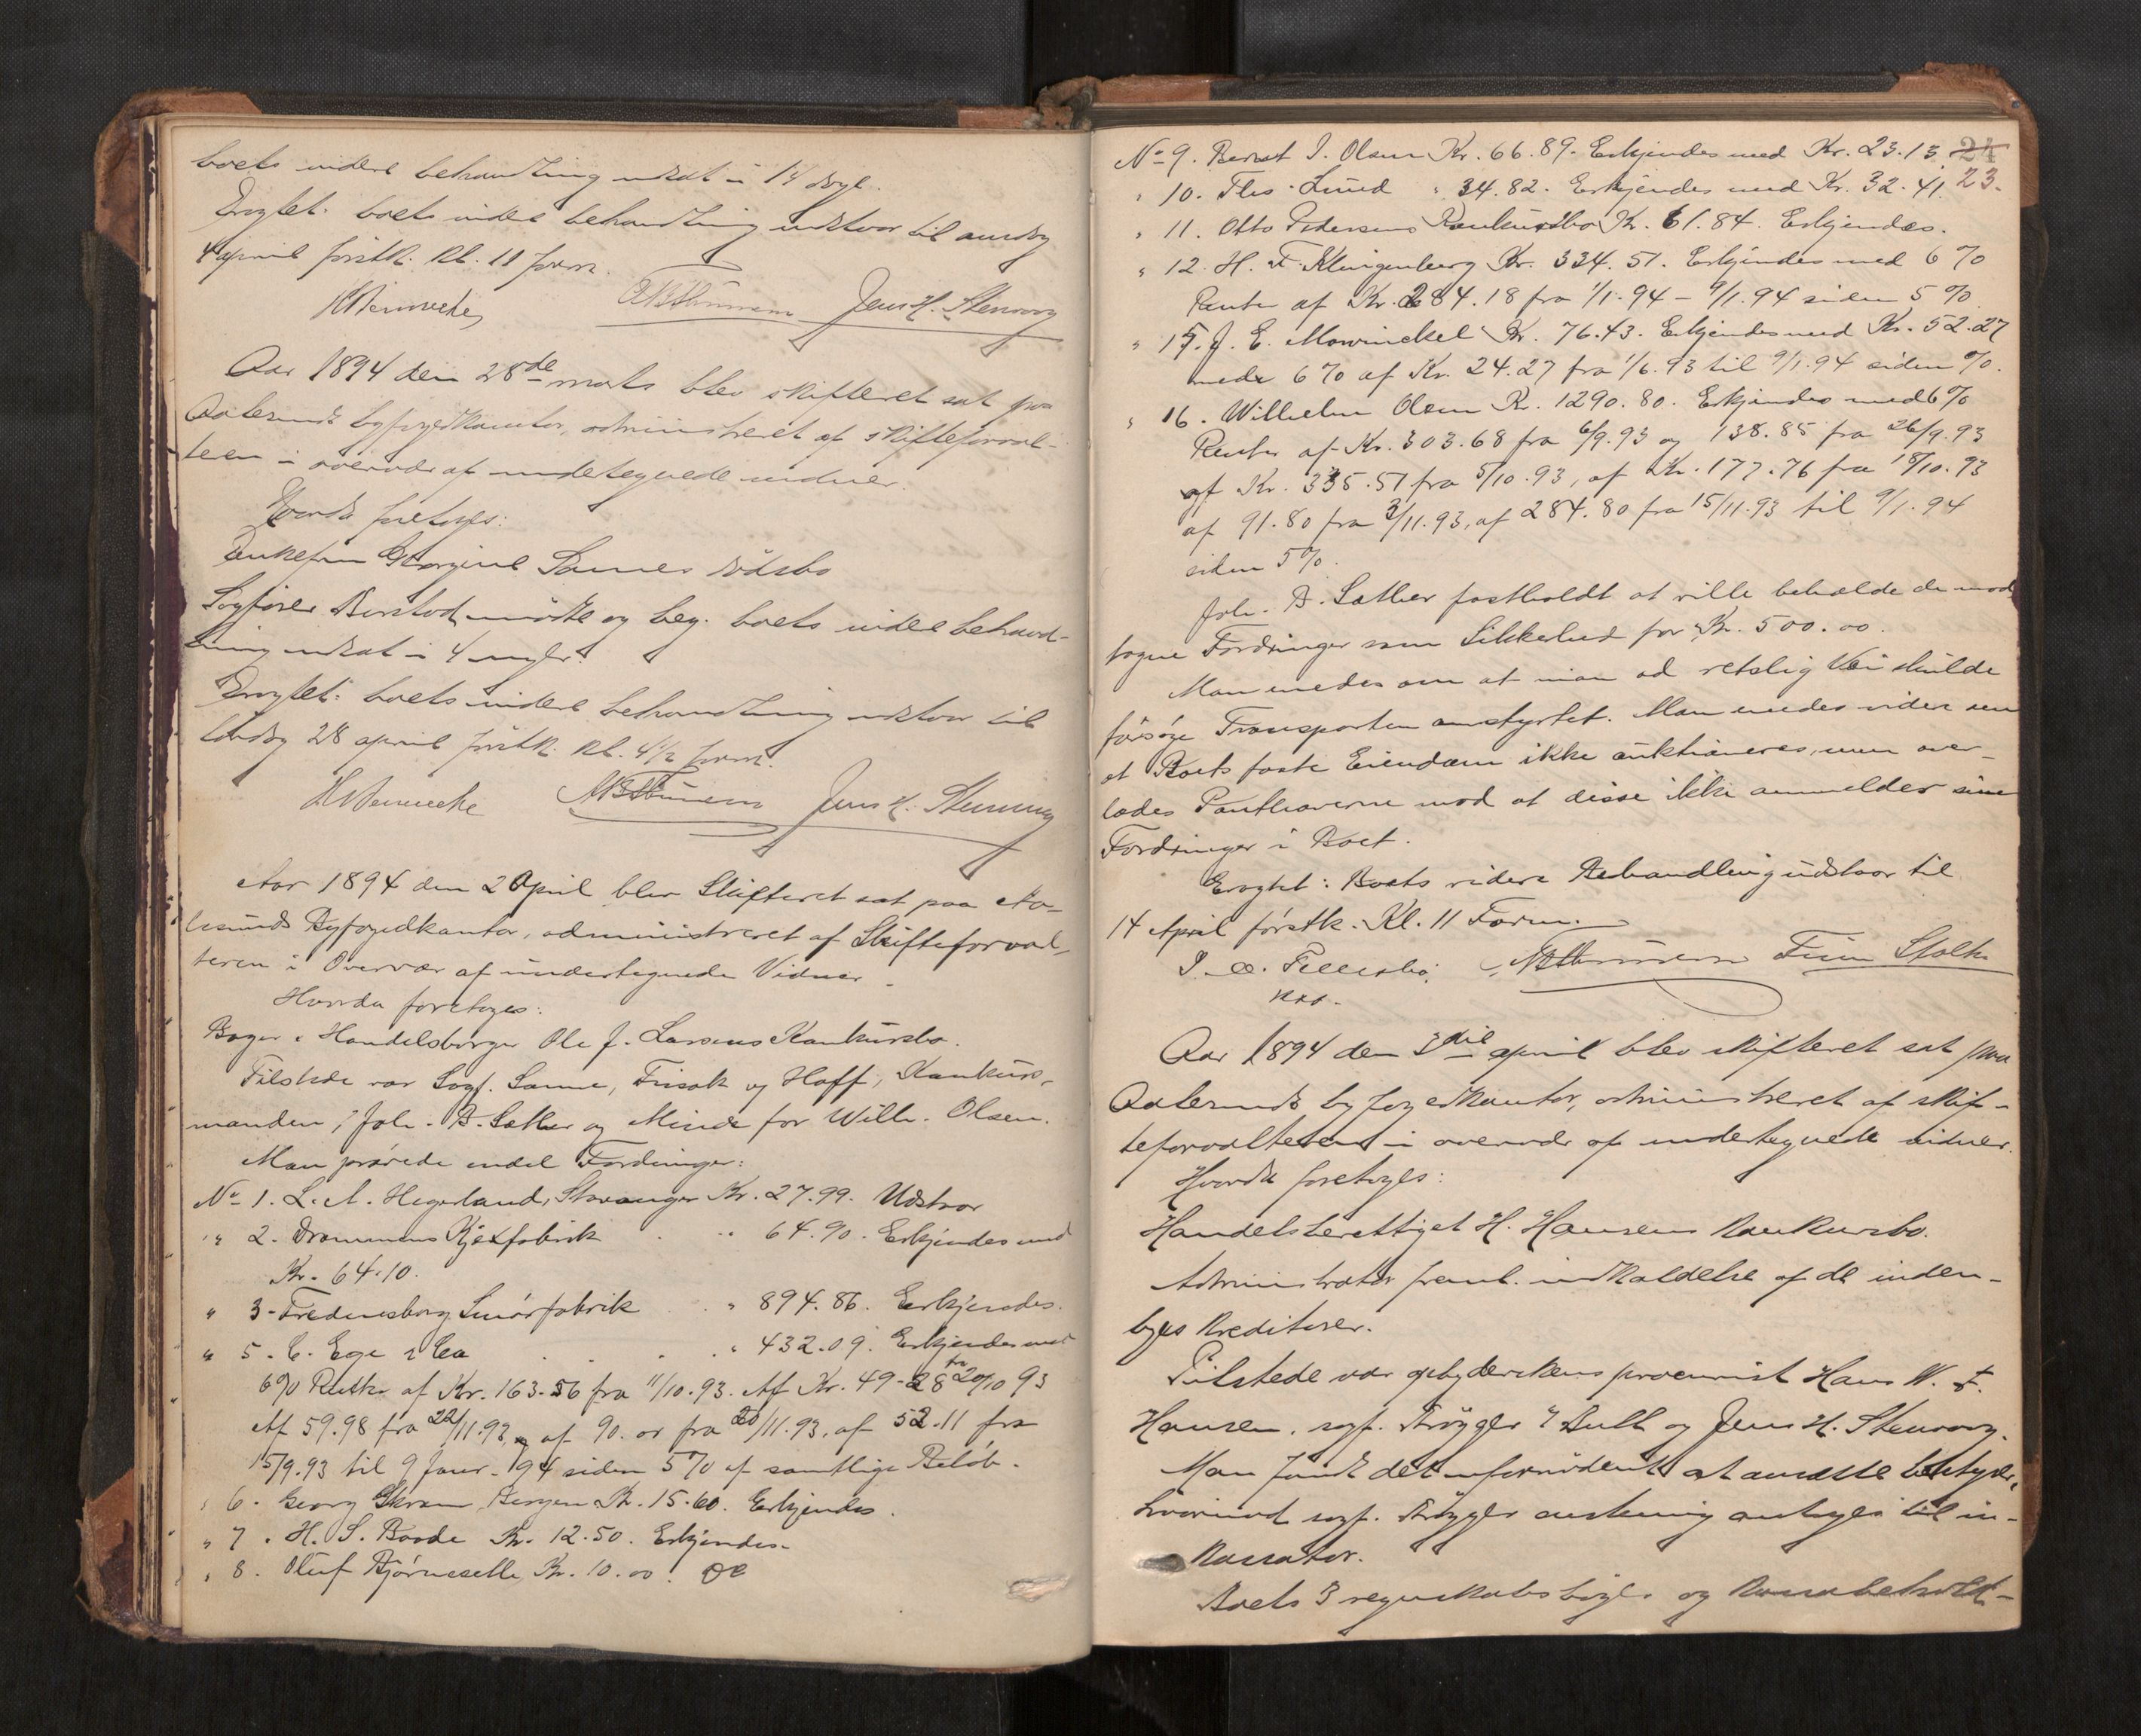 boets videre behandling udsat i 14 dage.
Eragtet: boets videre behandling udstaar til onsdag
4 april førstk. kl. 11 form.
Jens H. Stenvaag
Aar 1894 den 28de marts blev skifteret sat paa
Aalesunds byfogedkontor, administreret af skifteforval-
teren i overvær af undertegnede vidner.
Hvorda foretoges:
Enkefru Georgine Sannes dødsbo
Sagfører Aarstad mødte og beg. boets videre behand-
ling udsat i 4 uger.
Eragtet: boets videre behandling udstaar til
lørdag 28 april førstk. kl. 4 1/2 form.
Jens H. Stenvaag
Aar 1894 den 2 April blev Skifteret sat paa Aa-
lesunds Byfogedkontor, administreret af Skifteforval-
teren i Overvær af undertegnede Vidner.
Hvorda foretoges:
Bager & Handelsborger Ole J. Larsens Konkursbo.
Tilstede var Sagf. Sanne, Frisak og Hoff, Konkurs-
manden, Joh. A. Sæther og Minde for Wilh. Olsen.
Man prøvede endel Fordringer:
No 1. L. A. Hegerland, Stavanger Kr. 27.99. Udstaar
" 2. Drammens Kjexfabrik . . " 64.90. Erkjendes med
Kr. 64.10.
" 3. Fredensborg Smørfabrik . " 894.86. Erkjendes.
" 5. C. Ege & Co . . . " 432.09. Erkjendes med
6% Renter af Kr. 163.56 fra 11/10.93. Af Kr. 49.28 fra 20/10 93
Af 59.98 fra 22/11.93, af 90.00 fra 20/11.93, af 52.11 fra
15/9.93 til 9 Januar 94 siden 5% af samtlige Beløb.
" 6. Georg Ekrem, Bergen Kr. 15.60. Erkjendes.
" 7. H. S. Baade Kr. 12.50. Erkjendes.
" 8. Oluf Bjørneseth Kr. 10.00.
24
No 9. Bernt I. Olsen Kr. 66.89. Erkjendes med Kr. 23.13.
23.
" 10. Ths. Lund " 34.82. Erkjendes med Kr. 32.41.
" 11. Otto Pedersens Konkursbo Kr. 61.84. Erkjendes.
" 12. H. F. Klingenberg Kr. 334.51. Erkjendes med 6%
Renter af Kr. 284.18 fra 1/1.94 – 9/1.94 siden 5%.
" 15. J. E. Mowinckel Kr. 76.43. Erkjendes med Kr. 52.27
med 6% af Kr. 24.27 fra 1/6.93 til 9/1.94 siden %.
" 16. Wilhelm Olsen Kr. 1290.80. Erkjendes med 6%
Renter af Kr. 303.68 fra 6/9.93 og 138.85 fra 26/9.93
af Kr. 335.51 fra 5/10.93, af Kr. 177.76 fra 18/10.93
af 91.80 fra 3/11.93, af 284.80 fra 15/11.93 til 9/1.94
siden 5%.
Joh. A. Sæther fastholdt at ville beholde de mod
tagne Fordringer som Sikkerhed for Kr. 500.00.
Man enedes om at man ad retslig Vei skulde
forsøge Transporten omstyrtet. Man enedes videre om
at Boets faste Eiendom ikke auktioneres, men over-
lades Panthaverne mod at disse ikke anmelder sine
Fordringer i Boet.
Eragtet: Boets videre Behandling udstaar til
14 April førstk. Kl. 11 Form.
Aar 1894 den 3die april blev skifteret sat paa
Aalesunds byfogedkontor, administreret af skif-
teforvalteren i overvær af undertegnede vidner.
Hvorda foretoges:
Handelsberettiget H. Hansens konkursbo.
Administrator freml. indkaldelse af de inden-
byes kreditorer.
Tilstede var opbyderskens procurist Hans W.
Hansen, sagf. Brøgger & Bull og Jens H. Stenvaag.
Man fandt det ufornødent at ansætte bestyrer,
hvorimod sagf. Brøgger enstemmig antoges til in-
kassator.
Boets 3 regnskabsbøger og kassabehold-